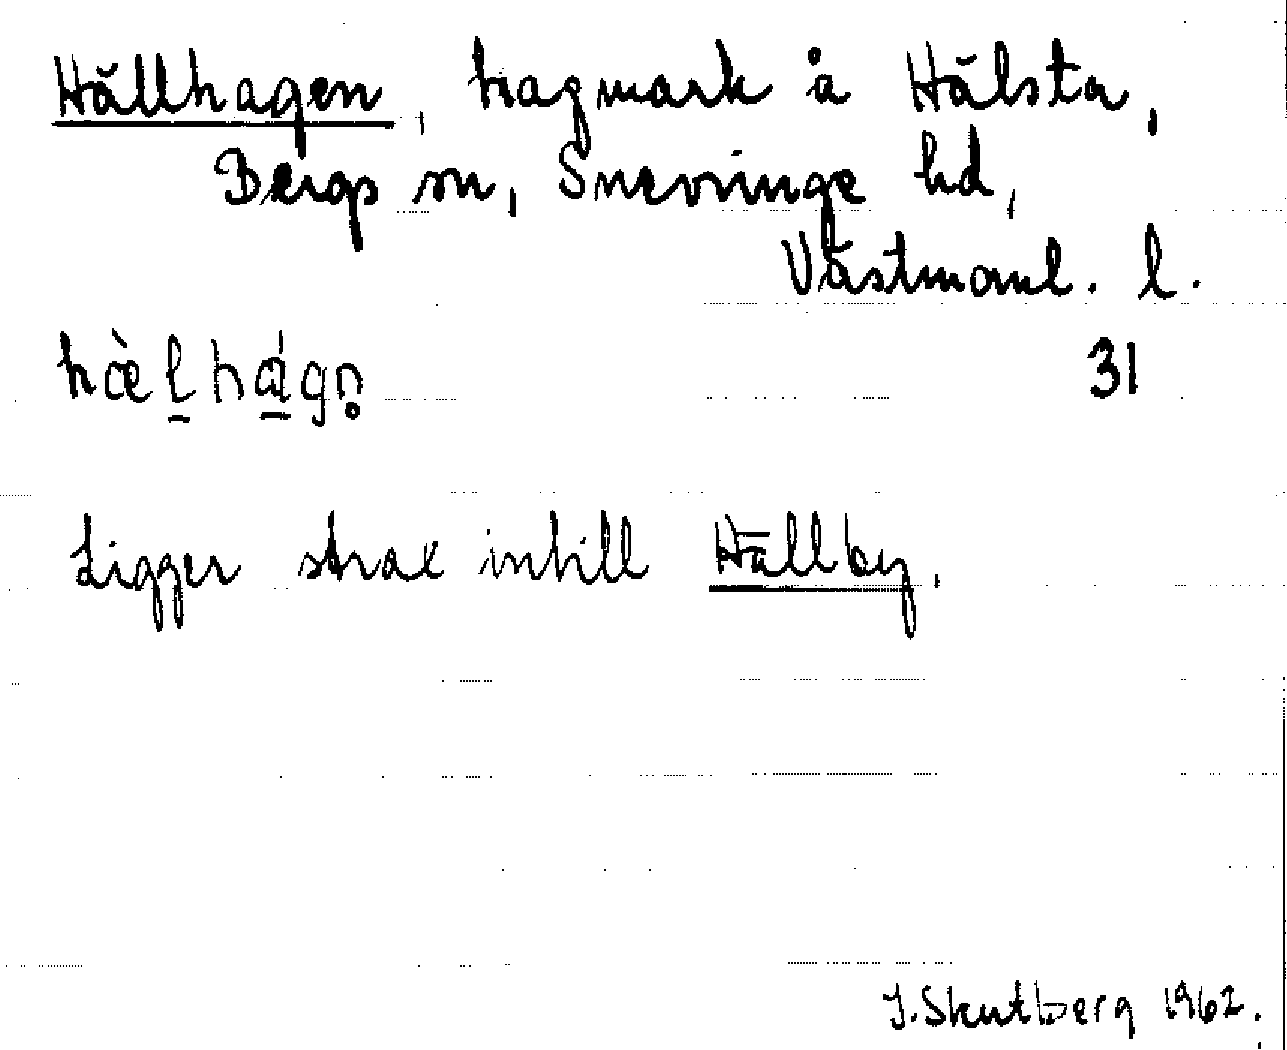 Hällhagen, hagmark å Hälsta,
Bergs sn, Snevringe hd,
Västmanl. l.
hæ̀l̠há̠gn̥
31
Ligger strax intill Hällby.
J. Skutberg 1962.